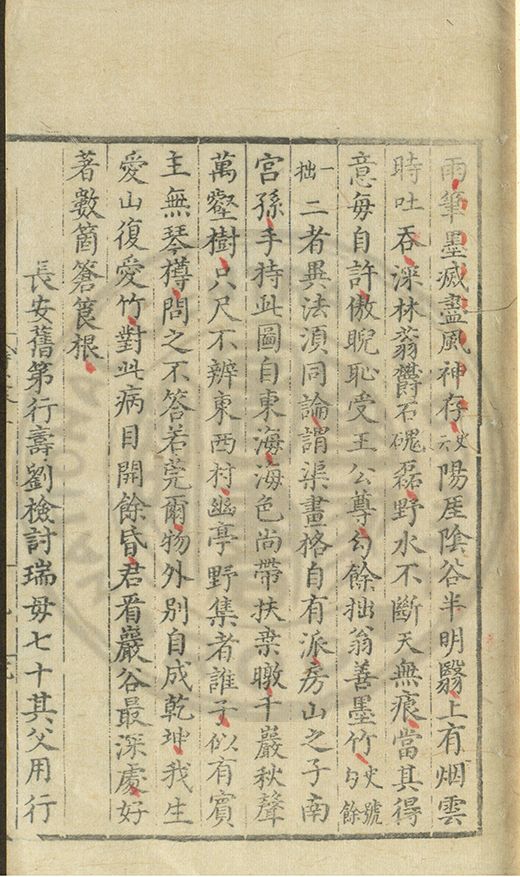 雨筆墨滅盡風神存文史陽厓陰谷半明翳上有烟雲
時吐吞深林蓊欝石磈磊野水不斷天無痕當其得
意每自許傲睨恥受王公尊勾餘拙翁善墨竹史號勾餘
一拙二者異法須同論謂渠畫格自有派房山之子南
宮孫手持此圖自東海海色尚帶扶桒暾千巖秋聲
萬壑樹只尺不辨東西村幽亭野集者誰子似有賓
主無琴樽問之不答若莞爾物外别自成乾坤我生
愛山復愛竹對此病目開餘昏君看巖谷最深處好
著數箇篬筤根
長安舊第行壽劉檢討瑞母七十其父用行